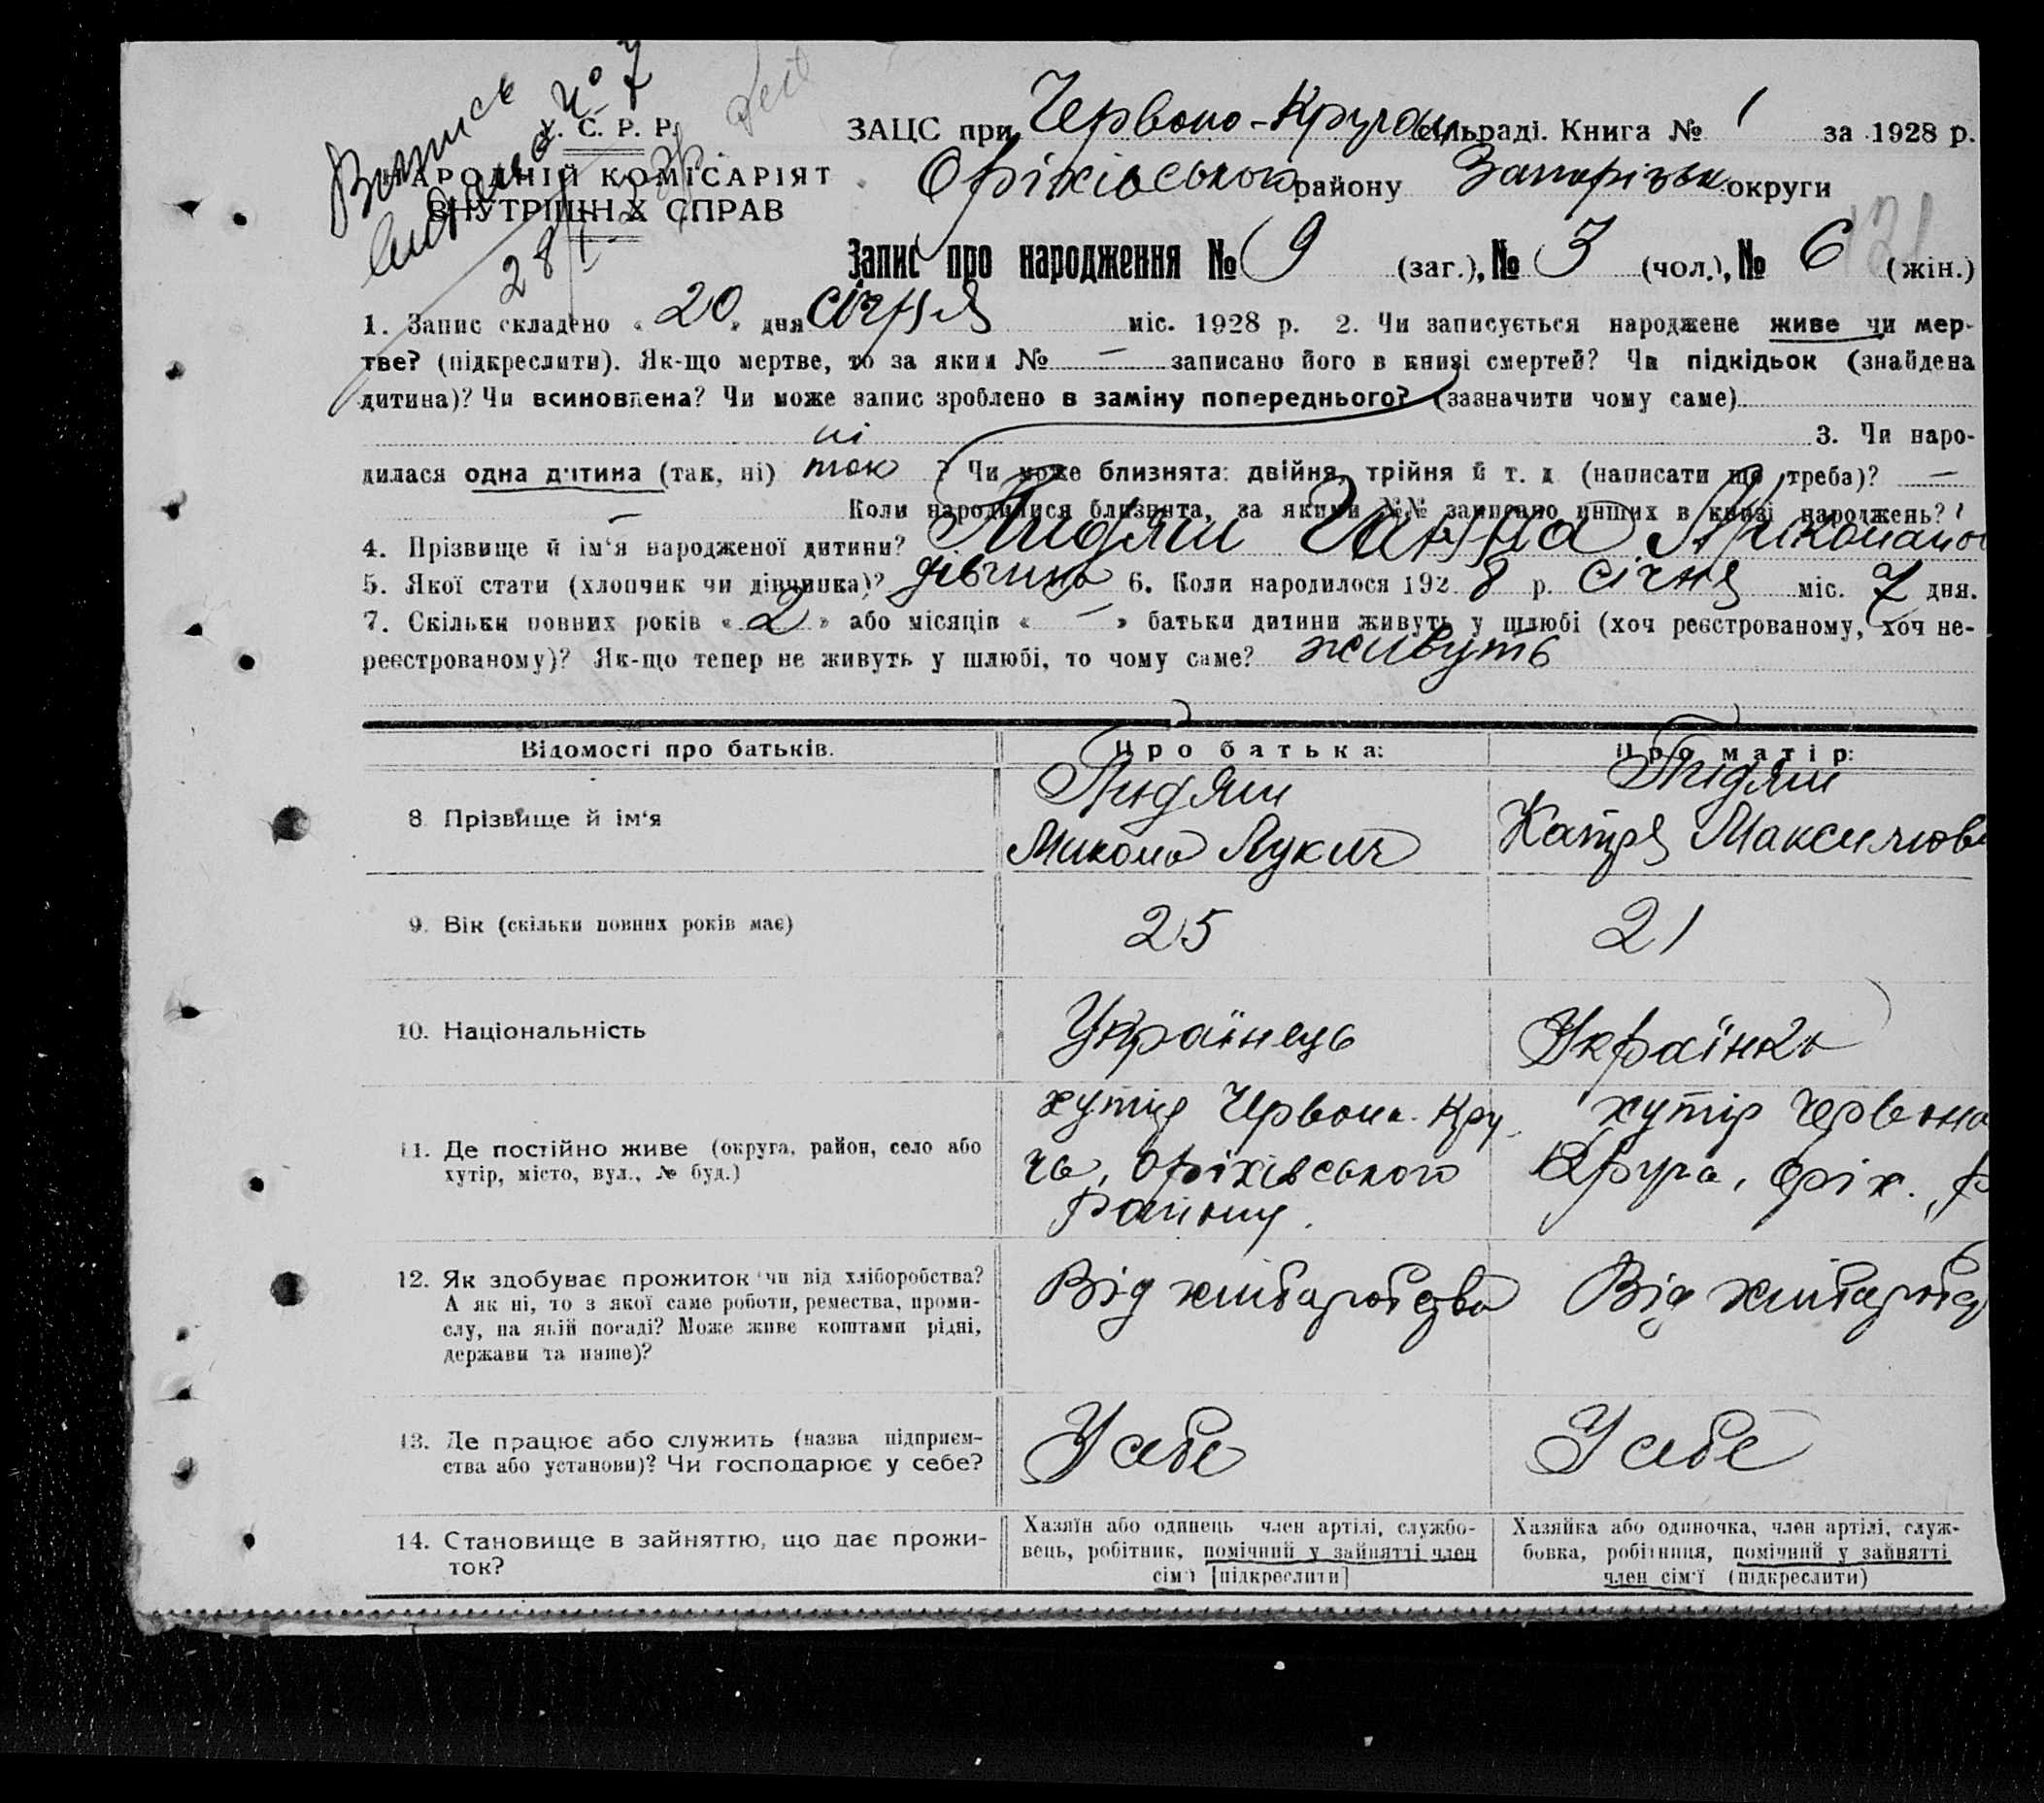 Выпись
выдана № 7
28/I
У. С. Р. Р.
НАРОДНІЙ КОМІСАРІЯТ
ВНУТРІШНІХ СПРАВ
ЗАЦС при Червоно-Кручан сільраді. Книга № 1 за 1928 р.
Оріхівського району Запорізьк округи
121
Запис про народження № 9 (заг.), № 3 (чол.), № 6 (жін.)
1. Запис складено « 20 » дня січня міс. 1928 р. 2. Чи записується народжене живе чи мер-
тве? (підкреслити). Як-що мертве, то за яким № — записано його в книзі смертей? Чи підкідьок (знайдена
дитина)? Чи всиновлена? Чи може запис зроблено в заміну попереднього? (зазначити чому саме)
ні 3. Чи наро-
дилася одна дитина (так, ні) так ? Чи може близнята: двійня, трійня й т. д. (написати що треба)? —
— Коли народилися близнята, за якими №№ записано инших в книзі народжень?
4. Прізвище й ім'я народженої дитини? Пидяш Ганна Миколаїв
5. Якої стати (хлопчик чи дівчинка)? дівчина 6. Коли народилося 192 8 р. січня міс. 7 дня.
7. Скільки повних років « 2 » або місяців « — » батьки дитини живуть у шлюбі (хоч реєстрованому, хоч не-
реєстрованому)? Як-що тепер не живуть у шлюбі, то чому саме? живуть
Відомості про батьків. Про батька: Про матір:
8. Прізвище й ім'я
Пидяш
Микола Лукич
Пидяш
Катря Максимов
9. Вік (скільки повних років має) 25 21
10. Національність Українець Українка
11. Де постійно живе (округа, район, село або
хутір, місто, вул., № буд.)
хутір Червона Кру
ча, Оріхівського
району.
хутір Червона
Круча, Оріх. р
12. Як здобуває прожиток чи від хліборобства?
А як ні, то з якої саме роботи, ремества, проми-
слу, на якій посаді? Може живе коштами рідні,
держави та инше)?
Від хліборобства
Від хліборобс
13. Де працює або служить (назва підприєм-
ства або установи)? Чи господарює у себе?
У себе
У себе
14. Становище в зайняттю, що дає прожи-
ток?
Хазяїн або одинець член артілі, службо-
вець, робітник, помічний у зайнятті член
сім'ї [підкреслити]
Хазяйка або одиночка, член артілі, служ-
бовка, робітниця, помічний у зайнятті
член сім'ї (підкреслити)